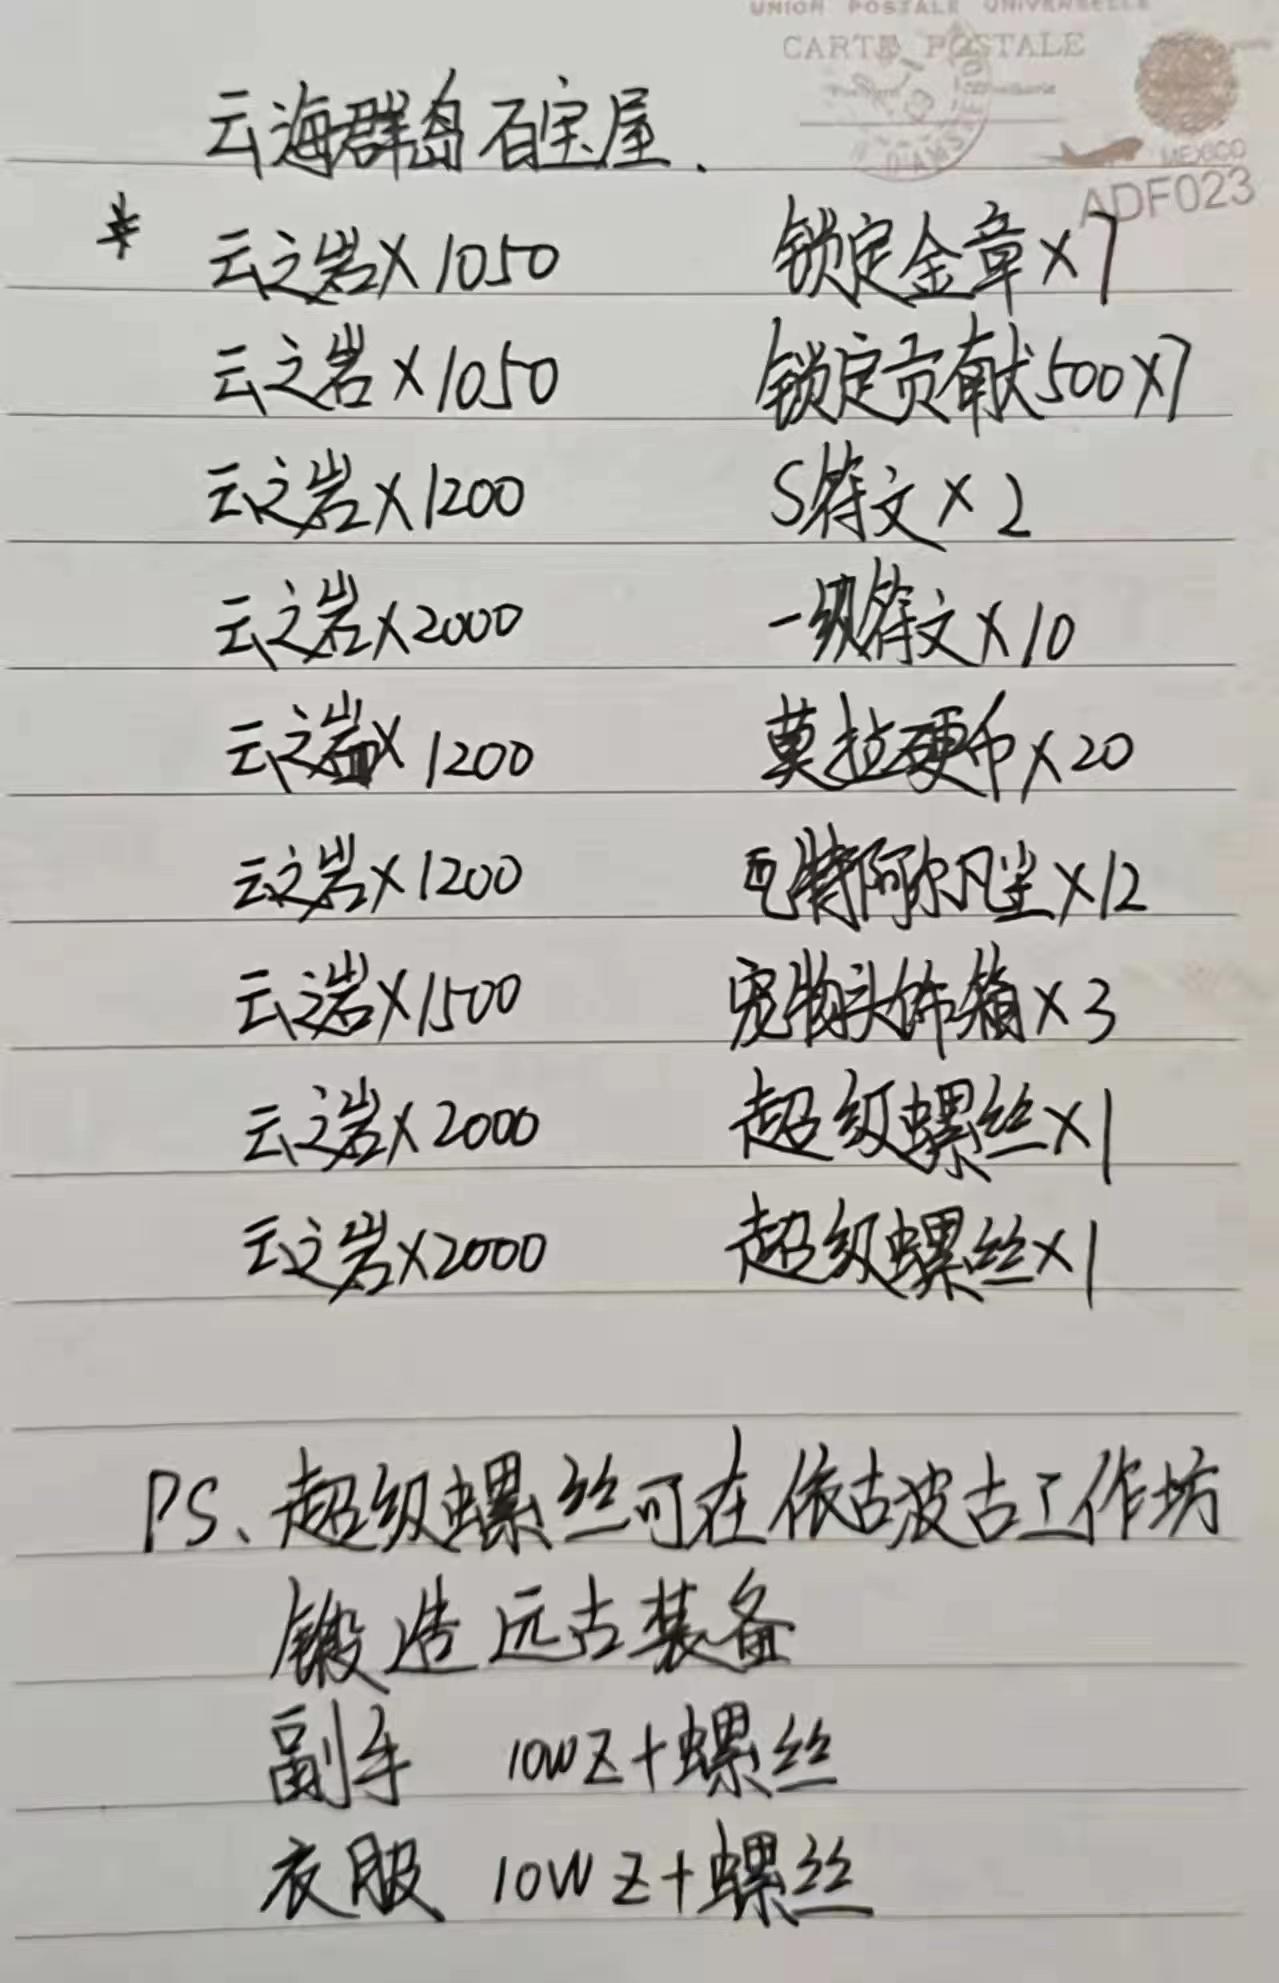 UNION POSTALE UNIVERSELLE
CARTE POSTALE
MEXICO
ADF023
云海群岛百宝屋.
* 云之岩×1050 锁定金章×7
云之岩×1050 锁定贡献500×7
云之岩×1200 S符文×2
云之岩×2000 一级符文×10
云之岩× 1200 莫拉硬币×20
云之岩×1200 瓦特阿尔凡尘×12
云之岩×1500 宠物头饰箱×3
云之岩×2000 超级螺丝×1
云之岩×2000 超级螺丝×1
PS、超级螺丝可在依古波古工作坊
锻造远古装备
副手 10WZ+螺丝
衣服 10WZ+螺丝